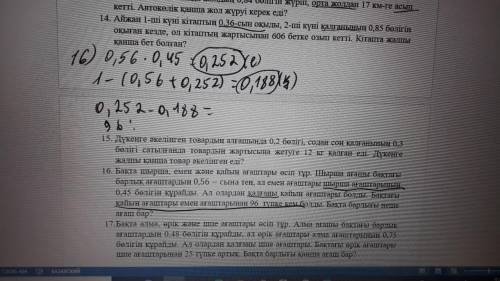 бөлігін жүріп, орта жолдан 17 км-ге асып
кетті. Автокөлік қанша жол жүруі керек еді?
14. Айжан 1-ші күні кітаптың 0,36-сын оқыды, 2-ші күні қалғанының 0,85 бөлігін
оқыған кезде, ол кітаптың жартысынан 606 бетке озып кетті. Кітапта жалпы
қанша бет болған?
16) 0,56 · 0,45 = 0,252 (е)
1 - (0,56 + 0,252) = 0,188 (қ)
0,252 - 0,188 =
96 :
15. Дүкенге әкелінген товардың алғашында 0,2 бөлігі, содан соң қалғанының 0,3
бөлігі сатылғанда товардың жартысына жетуге 12 кг қалған еді. Дүкенге
жалпы қанша товар әкелінген еді?
16. Бақта шырша, емен және қайың ағаштары өсіп тұр. Шырша ағашы бақтағы
барлық ағаштардың 0,56 – сына тең, ал емен ағаштары шырша ағаштарының
0,45 бөлігін құрайды. Ал олардан қалғаны қайың ағаштары болды. Бақтағы
қайың ағаштары емен ағаштарынан 96 түпке кем болды. Бақта барлығы неше
ағаш бар?
17. Бақта алма, өрік және шие ағаштары өсіп тұр. Алма ағашы бақтағы барлық
ағаштардың 0,48 бөлігін құрайды, ал өрік ағаштары алма ағаштарының 0,75
бөлігін құрайды. Ал олардан қалғаны шие ағаштары. Бақтағы өрік ағаштары
шие ағаштарынан 25 түпке артық. Бақта барлығы қанша ағаш бар?
КАЗАХСКИЙ